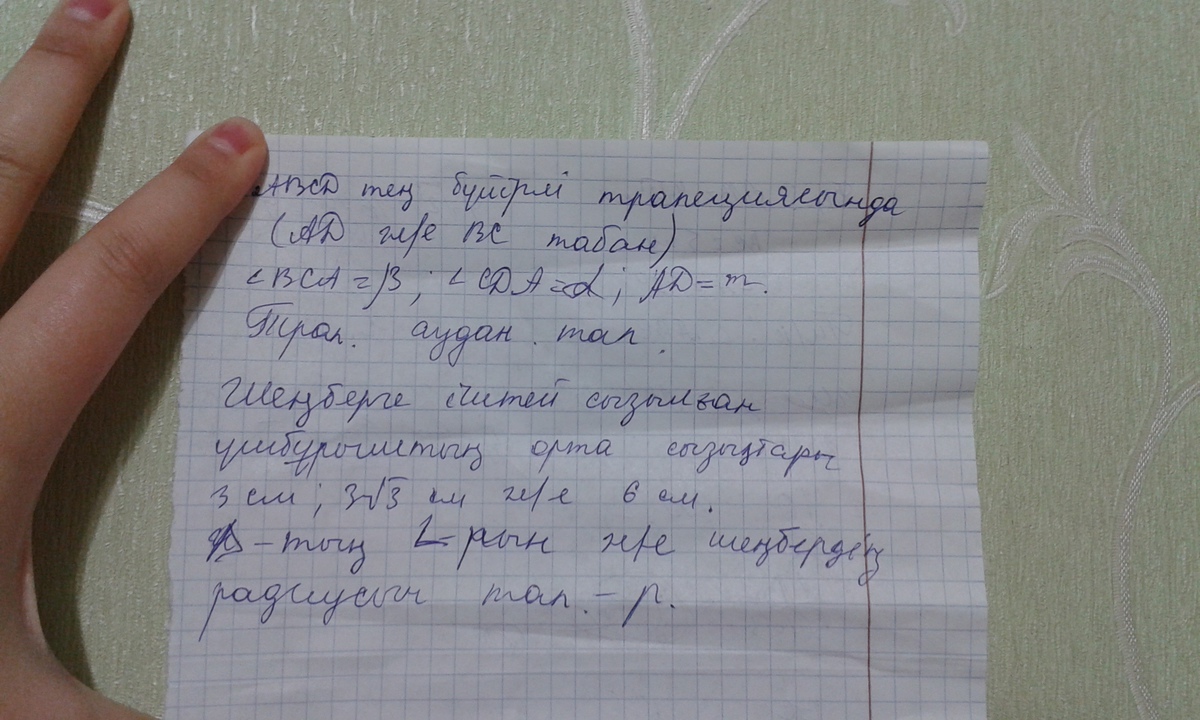 ABCD тең бүйірлі трапециясында
(AD ж/е BC табан)
∠BCA=β; ∠CDA=α; AD=m.
Трап. аудан. тап.
Шеңберге іштей сызылған
үшбұрыштың орта сызықтары
3 см; 3√3 см ж/е 6 см.
Δ-тың ∠-рын ж/е шеңбердің
радиусын тап. - р.